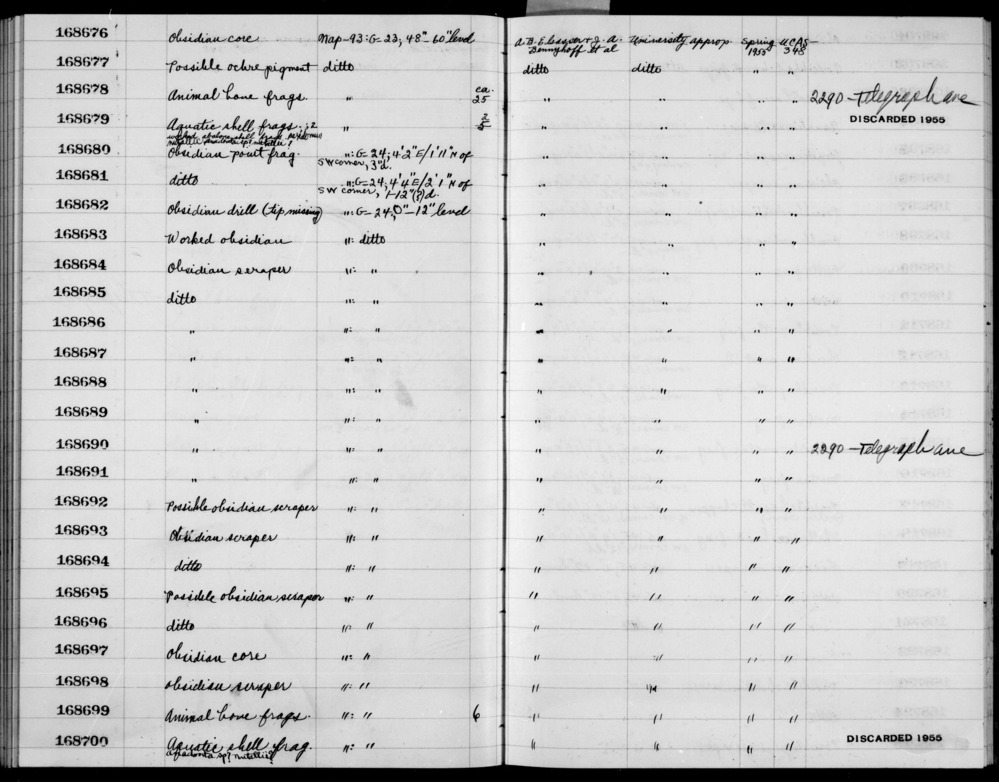 168676 Obsidian core Nap-93:G-23, 48"-60" level A.B. Elsasser & J.A. Bennyhoff et al University approp. Spring 1955 UCAS-348
168677 Possible ochre pigment ditto ditto ditto " "
168678 Animal bone frags. " ca. 25 " " " " 2290-Telegraph ave
168679 Aquatic shell frags. " " " " " DISCARDED 1955
168680 Obsidian point frag. ":G-24; 4'2"E/1'11"N of SW corner, 3"d. " " " "
168681 ditto ":G-24; 4'4"E/2'1"N of SW corner, 1-12"(?)d. " " " "
168682 Obsidian drill (tip missing) ":G-24, 0"-12" level " " " "
168683 Worked obsidian ": ditto " " " "
168684 Obsidian scraper ": " " " " "
168685 ditto ": " " " " "
168686 " ": " " " " "
168687 " ": " " " " "
168688 " ": " " " " "
168689 " ": " " " " "
168690 " ": " " " " " 2290-Telegraph ave
168691 " ": " " " " "
168692 Possible obsidian scraper ": " " " " "
168693 Obsidian scraper ": " " " " "
168694 ditto ": " " " " "
168695 Possible obsidian scraper ": " " " " "
168696 ditto ": " " " " "
168697 Obsidian core ": " " " " "
168698 obsidian scraper ": " " " " "
168699 Animal bone frags. ": " 6 " " " "
168700 Aquatic shell frag. ": " " " " " DISCARDED 1955